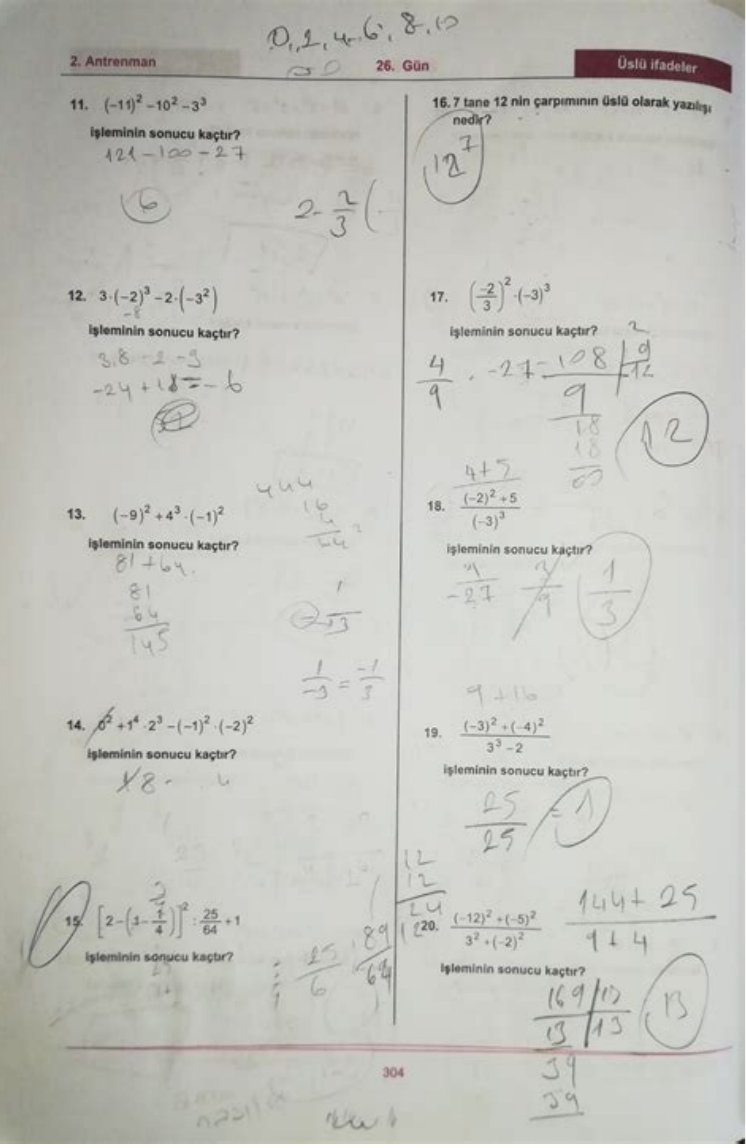 0, 2, 4, 6, 8, 10
2. Antrenman
26. Gün
Üslü ifadeler
11. (-11)² - 10² - 3³
işleminin sonucu kaçtır?
121 - 100 - 27
6
2 - 2/3 (
12. 3·(-2)³ - 2·(-3²)
-8
işleminin sonucu kaçtır?
3.8 - 2 - 9
-24 + 18 = - 6
13. (-9)² + 4³·(-1)²
işleminin sonucu kaçtır?
81 + 64
81
64
145
444
16
4
1/-3 = -1/3
14. 0² + 1⁴·2³ - (-1)²·(-2)²
işleminin sonucu kaçtır?
8 - 4
15. [2 - (1 - 1/4)]² : 25/64 + 1
işleminin sonucu kaçtır?
25/6
89/64
16. 7 tane 12 nin çarpımının üslü olarak yazılışı
nedir?
12⁷
17. (-2/3)²·(-3)³
işleminin sonucu kaçtır?
4/9 . -27 = 108 | 9
9 12
18
18
00
12
4 + 5
18. (-2)² + 5 / (-3)³
işleminin sonucu kaçtır?
9/-27 3/9 1/3
9 + 16
19. (-3)² + (-4)² / 3³ - 2
işleminin sonucu kaçtır?
25/25 = 1
12
12
24
12
20. (-12)² + (-5)² / 3² + (-2)²
144 + 25 / 9 + 4
işleminin sonucu kaçtır?
169 | 13
13 | 13
39
39
13
304